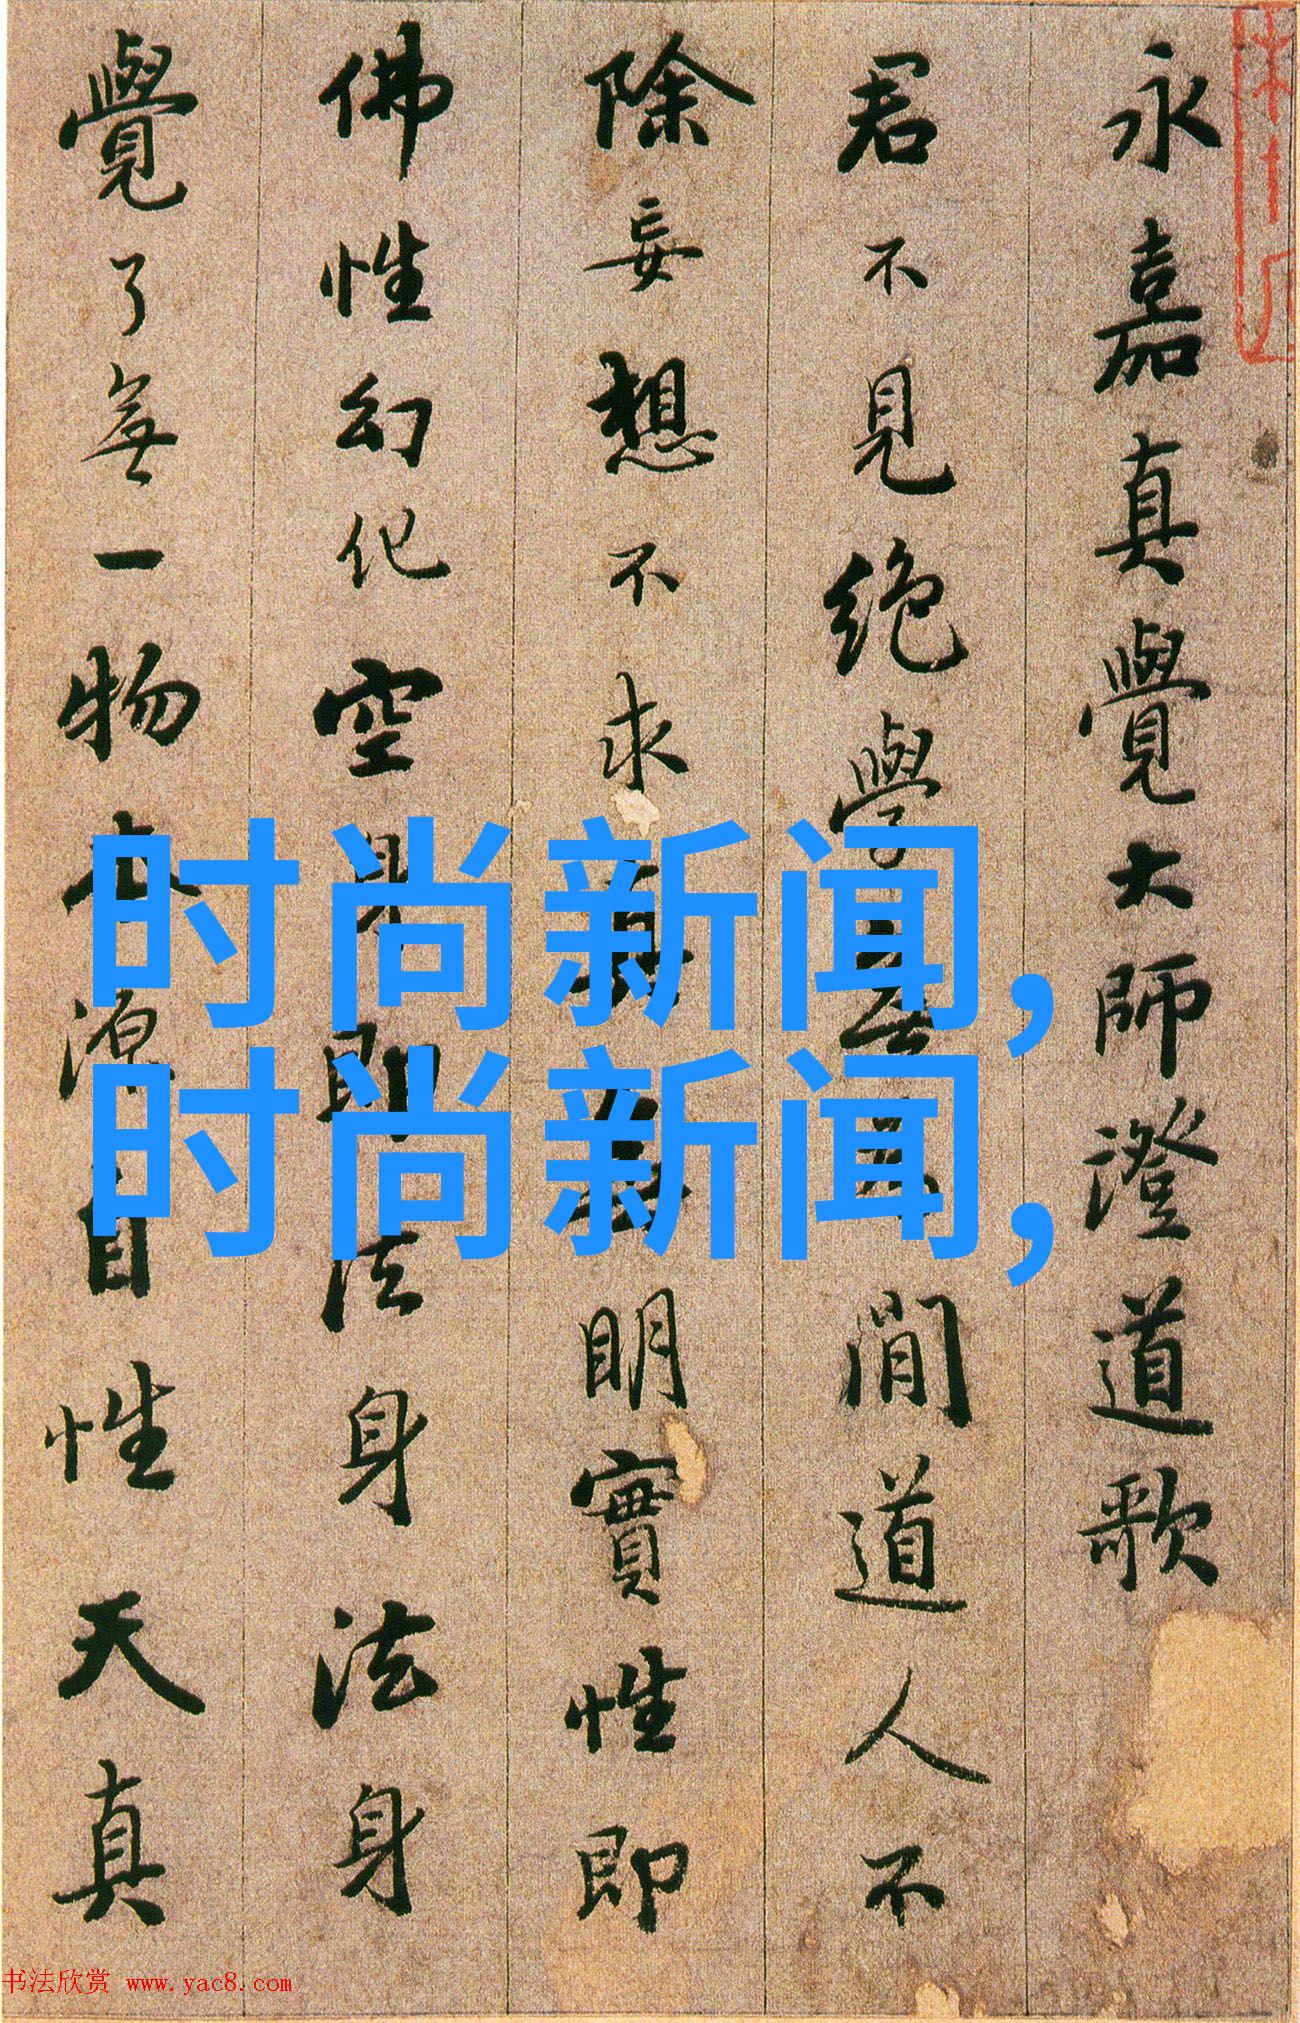 永嘉真覺大師澄道歌
君不見絶學無為閒道人不
除妄想不求真無明實性即
佛性幻化空身即法身法身
覺了無一物本源自性天真
时尚新闻,
时尚新闻,
书法欣赏 www.yac8.com